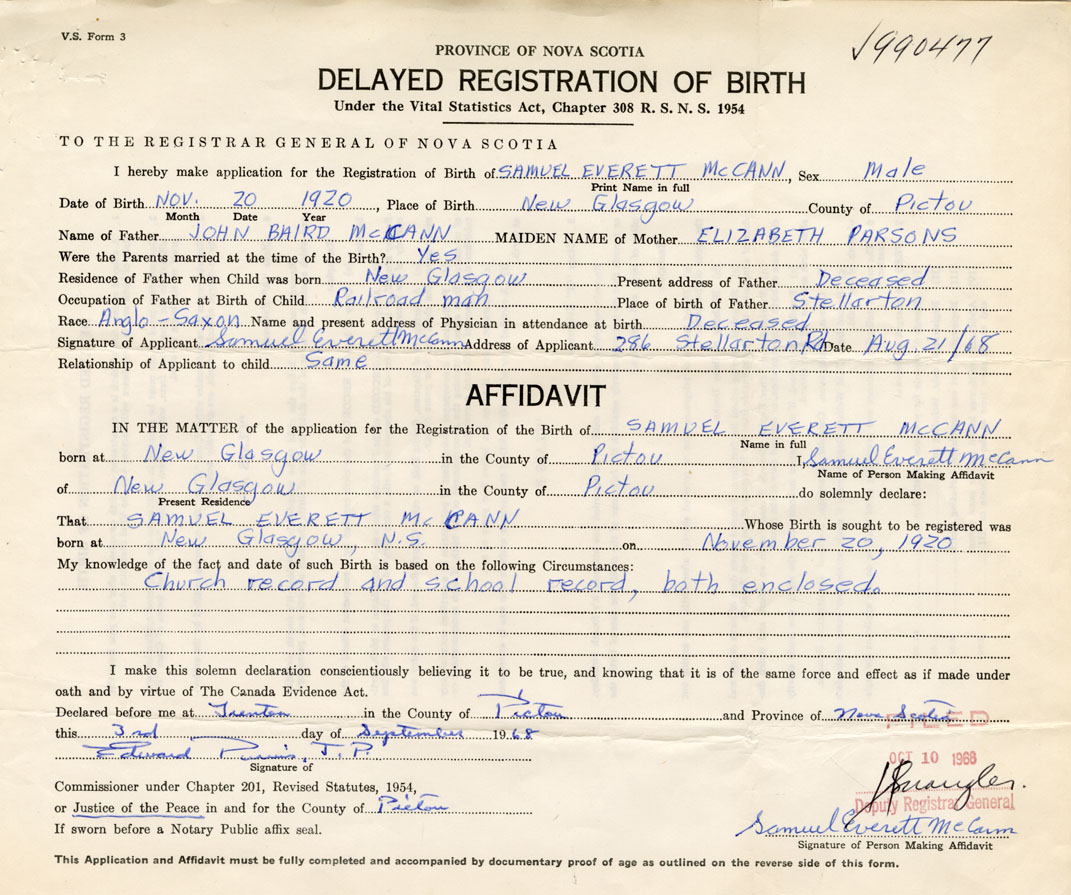 V.S. Form 3
990477
PROVINCE OF NOVA SCOTIA
DELAYED REGISTRATION OF BIRTH
Under the Vital Statistics Act, Chapter 308 R. S. N. S. 1954
TO THE REGISTRAR GENERAL OF NOVA SCOTIA
I hereby make application for the Registration of Birth of SAMUEL EVERETT McCANN, Sex Male
Print Name in full
Date of Birth NOV. 20 1920, Place of Birth New Glasgow County of Pictou
Month Date Year
Name of Father JOHN BAIRD McCANN MAIDEN NAME of Mother ELIZABETH PARSONS
Were the Parents married at the time of the Birth? Yes
Residence of Father when Child was born New Glasgow Present address of Father Deceased
Occupation of Father at Birth of Child Railroad man Place of birth of Father Stellarton
Race Anglo-Saxon Name and present address of Physician in attendance at birth Deceased
Signature of Applicant Samuel Everett McCann Address of Applicant 286 Stellarton Rd Date Aug. 21/68
Relationship of Applicant to child Same
AFFIDAVIT
IN THE MATTER of the application for the Registration of the Birth of SAMUEL EVERETT McCANN
Name in full
born at New Glasgow in the County of Pictou I, Samuel Everett McCann
Name of Person Making Affidavit
of New Glasgow in the County of Pictou do solemnly declare:
Present Residence
That SAMUEL EVERETT McCANN Whose Birth is sought to be registered was
born at New Glasgow, N.S. on November 20, 1920
My knowledge of the fact and date of such Birth is based on the following Circumstances:
Church record and school record, both enclosed.
I make this solemn declaration conscientiously believing it to be true, and knowing that it is of the same force and effect as if made under
oath and by virtue of The Canada Evidence Act.
Declared before me at Trenton in the County of Pictou and Province of Nova Scotia
FILED
this 3rd day of September 1968
OCT 10 1968
Edward J.P.
Signature of
Commissioner under Chapter 201, Revised Statutes, 1954,
or Justice of the Peace in and for the County of Pictou
Deputy Registrar General
If sworn before a Notary Public affix seal.
Samuel Everett McCann
Signature of Person Making Affidavit
This Application and Affidavit must be fully completed and accompanied by documentary proof of age as outlined on the reverse side of this form.